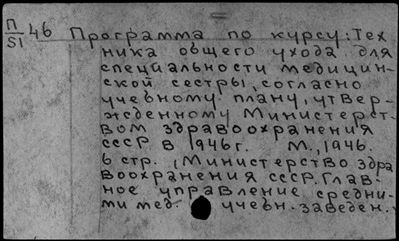 П/SI 46 Программа по курсу: Тех
ника общего ухода для
специальности медицин-
ской сестры, согласно
учебному плану, утвер-
жденному Министерст-
вом здравоохранения
СССР в 1946г. М., 1946.
6 стр. (Министерство здра
воохранения СССР. Глав-
ное управление средни-
ми мед. учебн. заведен.